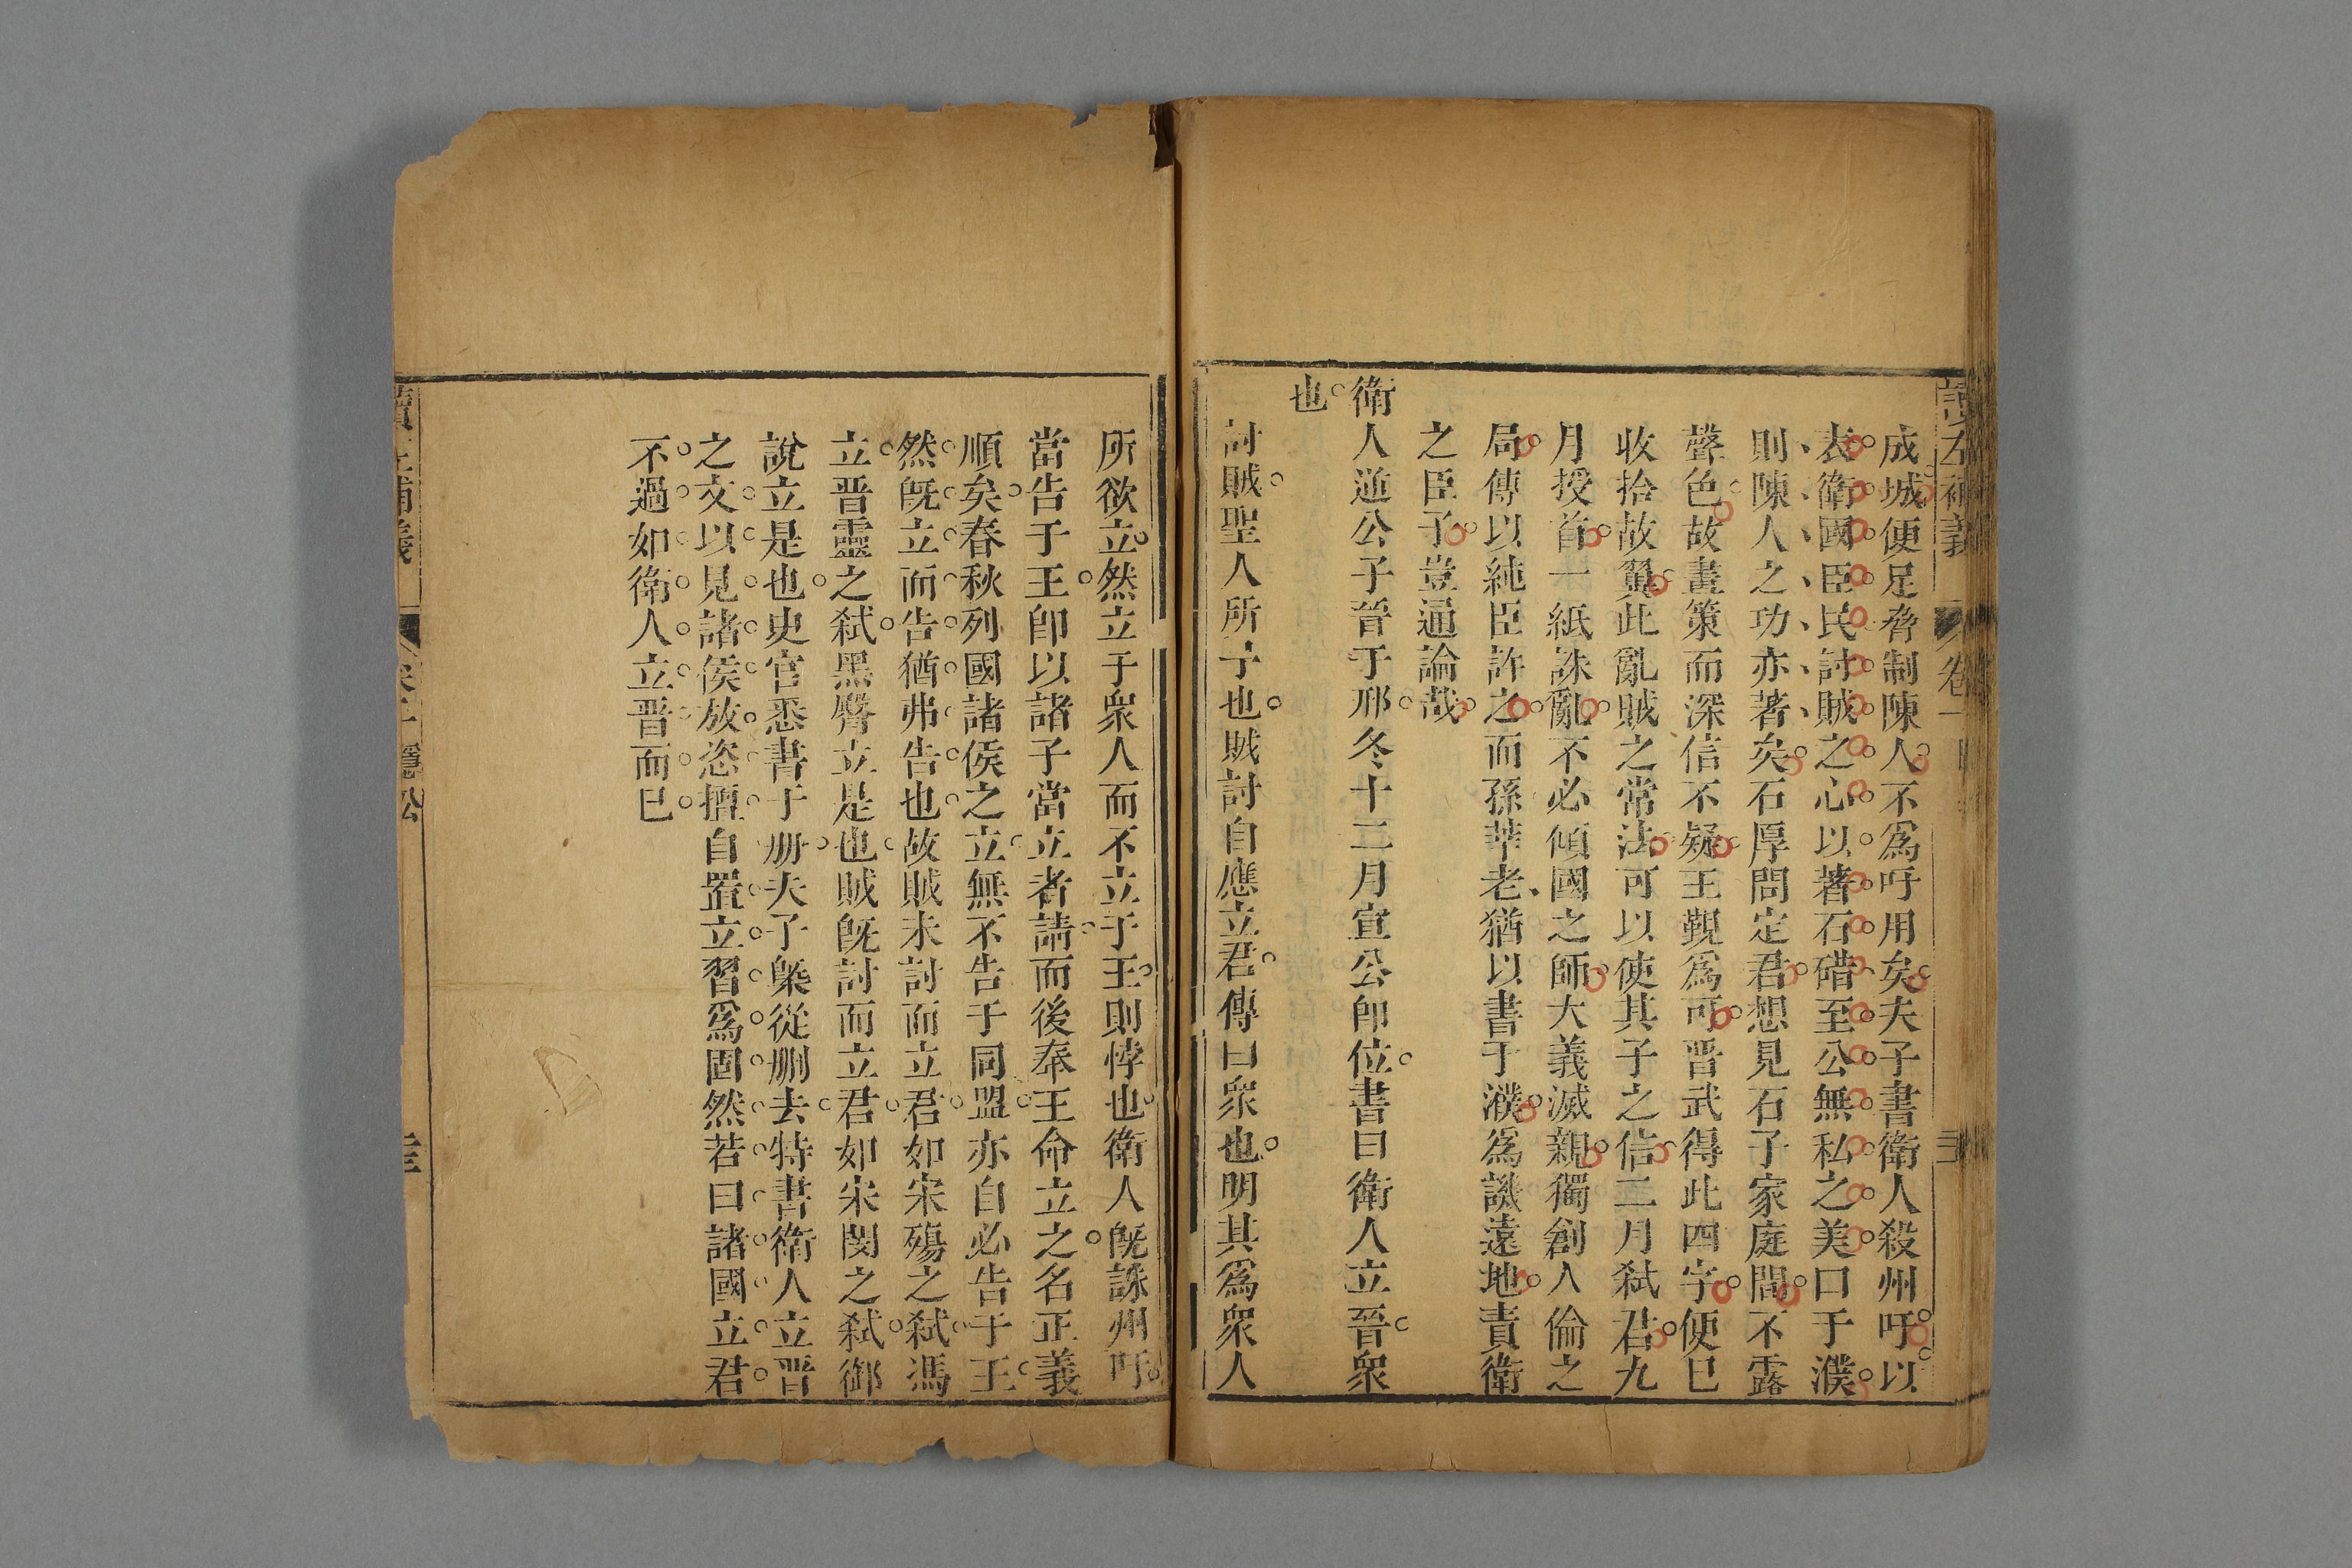 讀左補義 卷一
成城便足脅制陳人不爲吁用矣夫子書衛人殺州吁以
表衛國臣民討賊之心以著石碏至公無私之美口于濮
則陳人之功亦著矣石厚問定君想見石子家庭間不露
聲色故畫策而深信不疑王覲爲可晋武得此四字便已
收拾故故翼此亂賊之常法可以使其子之信二月弑君九
月授首一紙誅亂不必傾國之師大義滅親獨創人倫之
局傳以純臣許之而孫莘老猶以書于濮爲譏遠地責衛
之臣子豈通論哉
衛人逆公子晉于邢冬十二月宣公即位書曰衛人立晉衆
也
討賊聖人所予也賊討自應立君傳曰衆也明其爲衆人
所欲立然立于衆人而不立于王則悖也衛人旣誅州吁
當告于王即以諸子當立者請而後奉王命立之名正義
順矣春秋列國諸侯之立無不告于同盟亦自必告于王
然旣立而告猶弗告也故賊未討而立君如宋殤之弑馮
立晋靈之弑黑臀立是也賊旣討而立君如宋閔之弑御
說立是也史官悉書于册夫子槩從删去特書衛人立晋
之文以見諸侯放恣擅自置立習爲固然若曰諸國立君
不過如衛人立晋而已
讀左補義 卷一 隱公